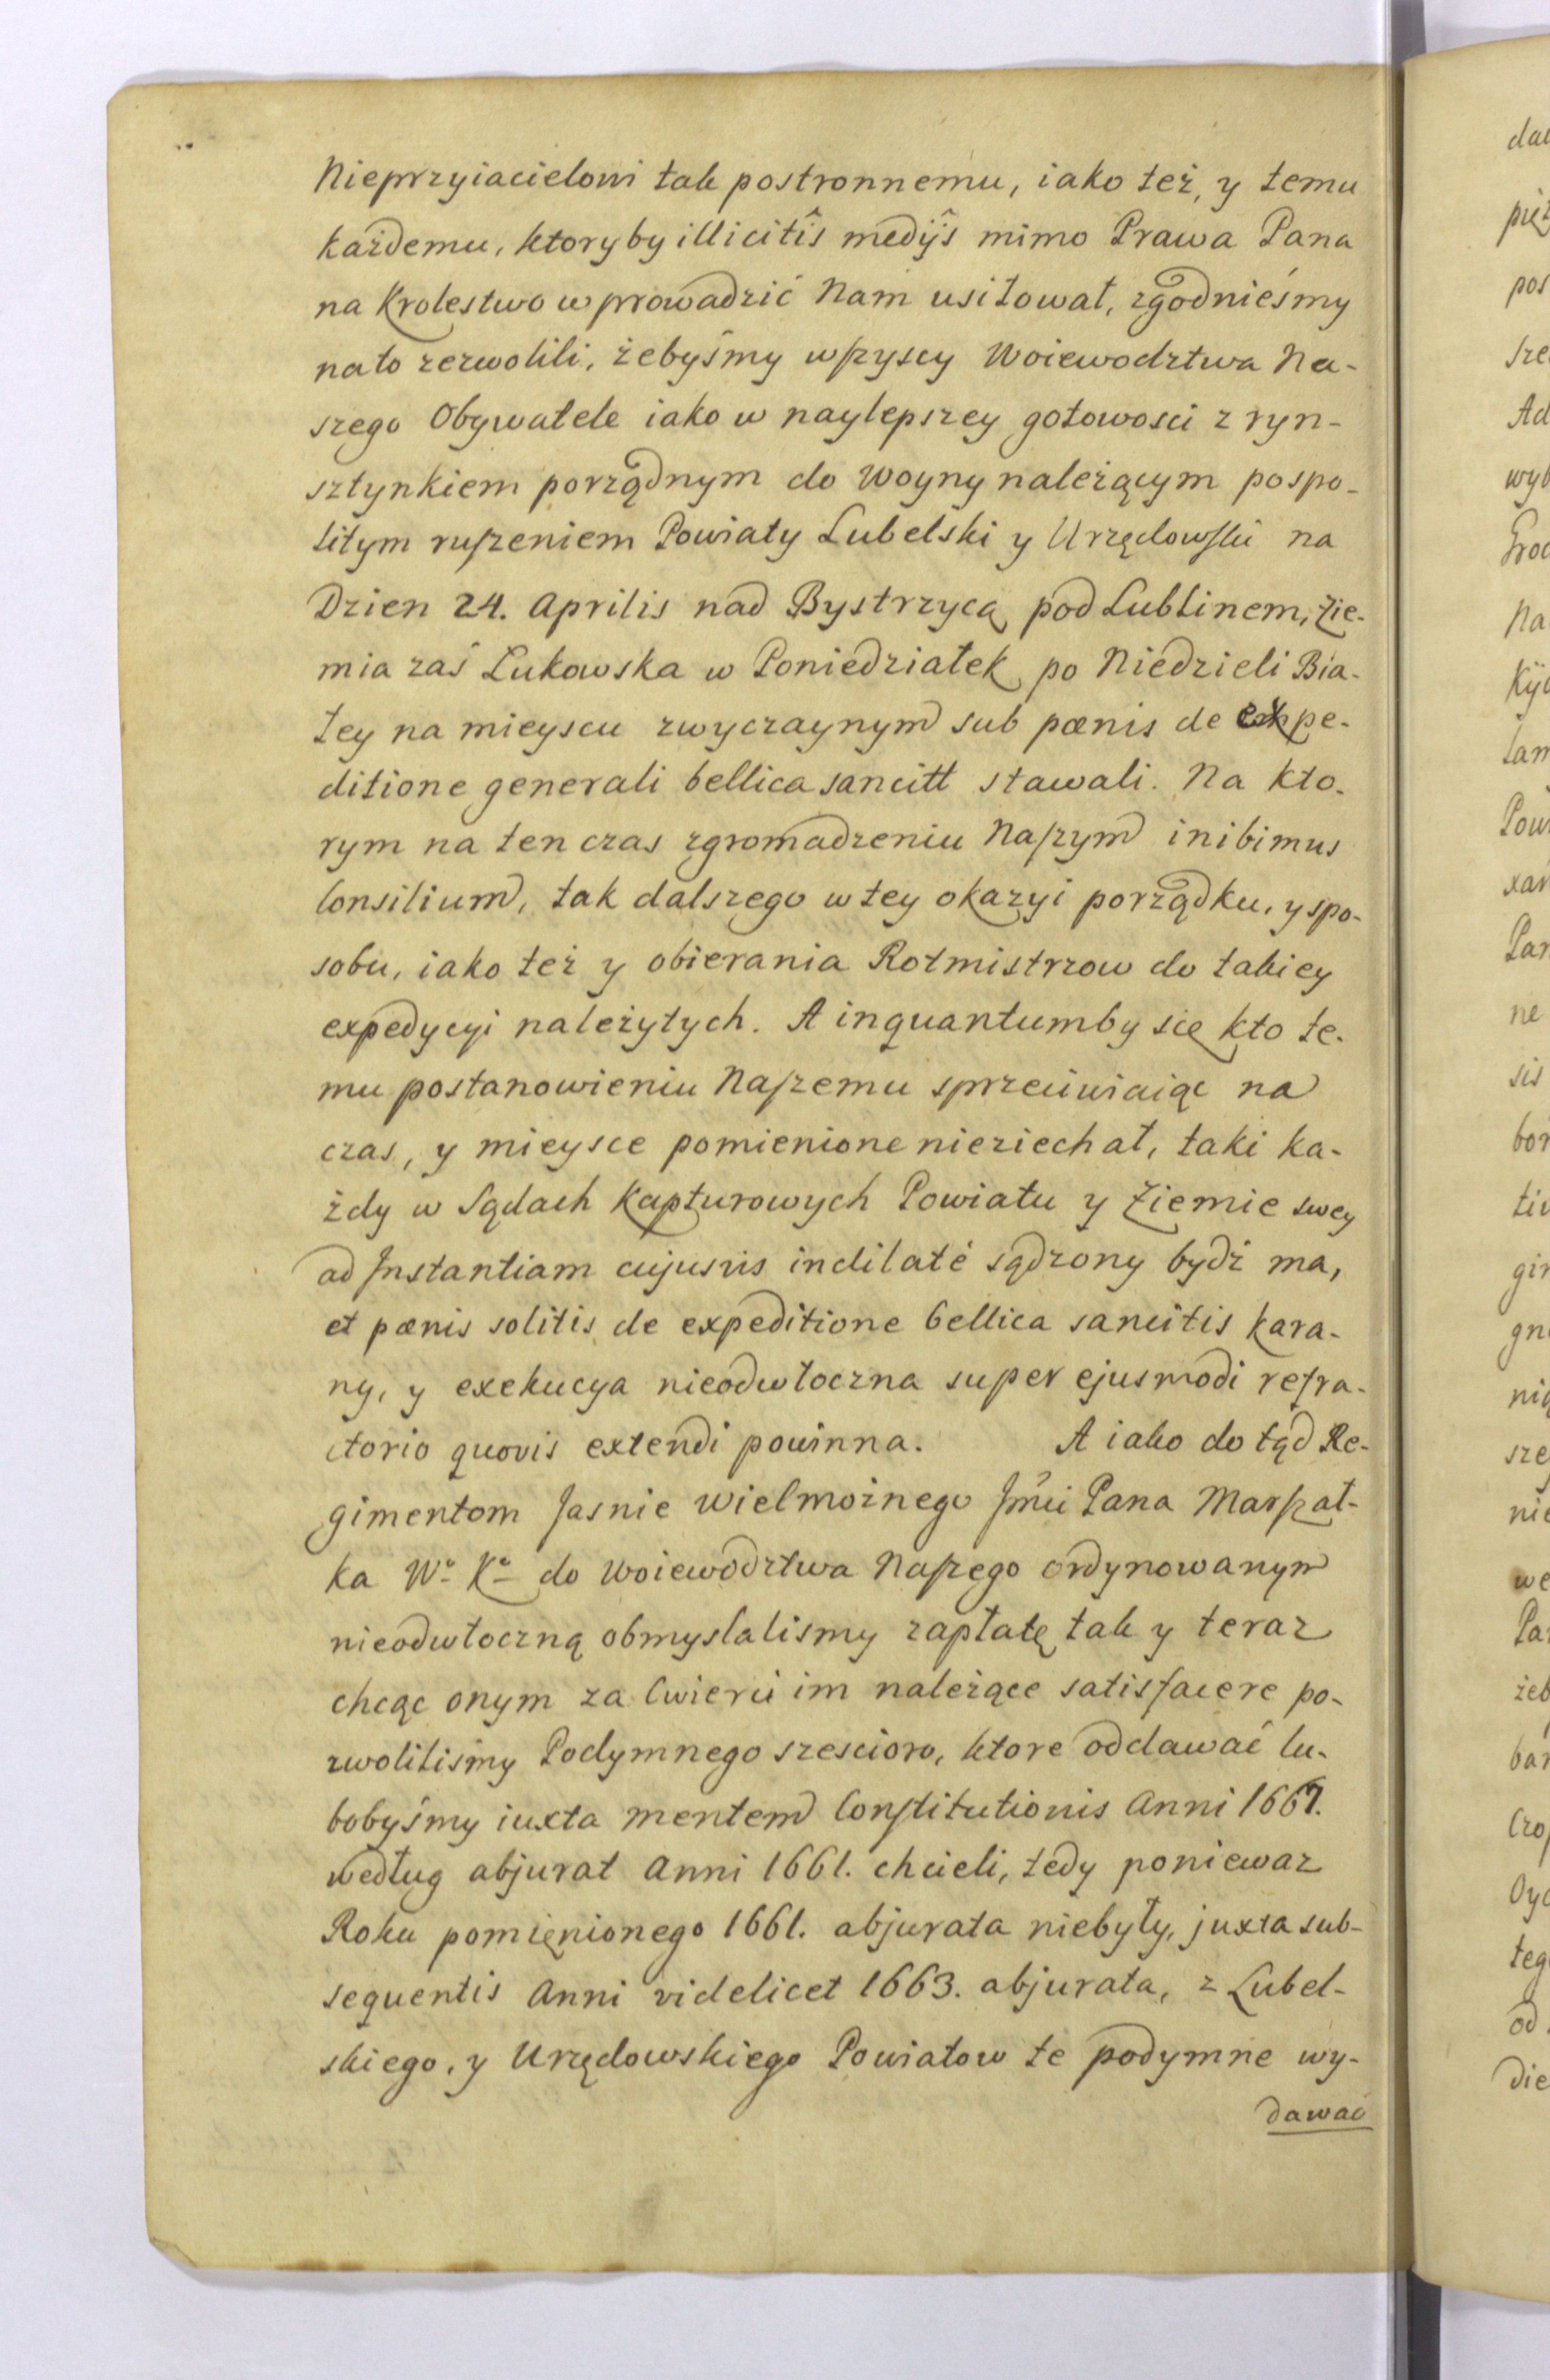 Nieprzyiacielowi tak postronnemu, iako też, y temu
każdemu, ktoryby illicitîs medijs mimo Prawa Pana
na Krolestwo wprowadzić Nam usiłował, zgodnieśmy
nato zezwolili, żebyśmy wszyscy Woiewodztwa Na-
szego Obywatele iako w naylepszey gotowosci z ryn-
sztynkiem porządnym do Woyny należącym pospo-
litym ruszeniem Powiaty Lubelski y Urzędowski na
Dzien 24. Aprilis nad Bystrzycą pod Lublinem, Zie-
mia zaś Łukowska w Poniedziałek po Niedzieli Bia-
łey na mieyscu zwyczaynym sub pœnis de expe-
ditione generali bellica sancitt stawali. Na kto-
rym na ten czas zgromadzeniu Naszym inibimus
Consilium, tak dalszego w tey okazyi porządku, y spo-
sobu, iako też y obierania Rotmistrzow do takiey
expedycyi należytych. A inquantumby się kto te-
mu postanowieniu Naszemu sprzeciwiaiąc na
czas, y mieysce pomienione nieziechał, taki ka-
żdy w Sądach Kapturowych Powiatu y Ziemie swey
ad Instantiam cujusvis indilatè sądzony bydź ma,
et pœnis solitis de expeditione bellica sancitis kara-
ny, y exekucya nieodwłoczna super ejusmodi refra-
ctorio quovis extendi powinna. A iako do tąd Re-
gimentom Jasnie Wielmożnego Jmći Pana Marszał-
ka W° K° do Woiewodztwa Naszego ordynowanym
nieodwłoczną obmyslalismy zapłatę tak y teraz
chcąc onym za Cwierci im należące satisfacere po-
zwolilismy Podymnego szescioro, ktore oddawać lu-
bobyśmy iuxta mentem Constitutionis Anni 1667.
według abjurat Anni 1661. chcieli, tedy poniewaz
Roku pomienionego 1661. abjurata niebyły, juxta sub-
sequentis Anni videlicet 1663. abjurata, z Lubel-
skiego, y Urzędowskiego Powiatow te podymne wy-
dawać